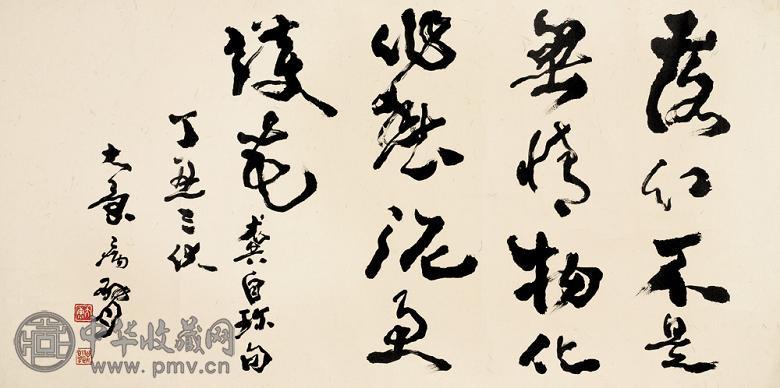 落红不是
無情物化
作泥更
護花龔自珍句
丁丑三伏
大康病臂
中华收藏网
www.pmv.cn